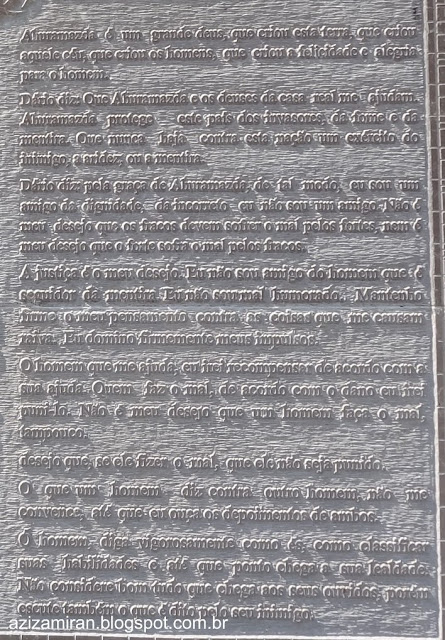 Ahuramazda é um grande deus, que criou esta terra, que criou
aquele céu, que criou os homens, que criou a felicidade e alegria
para o homem.
Dário diz: Que Ahuramazda e os deuses da casa real me ajudam.
Ahuramazda protege este país dos invasores, da fome e da
mentira. Que nunca haja contra esta nação um exército do
inimigo, a aridez, ou a mentira.
Dário diz: pela graça de Ahuramazda, de tal modo, eu sou um
amigo da dignidade, da incorreto eu não sou um amigo. Não é
meu desejo que os fracos devem sofrer o mal pelos fortes, nem é
meu desejo que o forte sofra o mal pelos fracos.
A justiça é o meu desejo. Eu não sou amigo do homem que é
seguidor da mentira. Eu não sou mal humorado. Mantenho
firme o meu pensamento contra as coisas que me causam
raiva. Eu domino firmemente meus impulsos.
O homem que me ajuda, eu irei recompensar de acordo com a
sua ajuda. Quem faz o mal, de acordo com o dano eu irei
puni-lo. Não é meu desejo que um homem faça o mal,
tampouco,
desejo que, se ele fizer o mal, que ele não seja punido.
O que um homem diz contra outro homem, não me
convence, até que eu ouça os depoimentos de ambos.
Ó homem, diga vigorosamente como és, como classificar
suas habilidades e até que ponto chega a sua lealdade.
Não considere bom tudo que chega aos seus ouvidos, porém
escute também o que é dito pelo seu inimigo.
azizamiran.blogspot.com.br